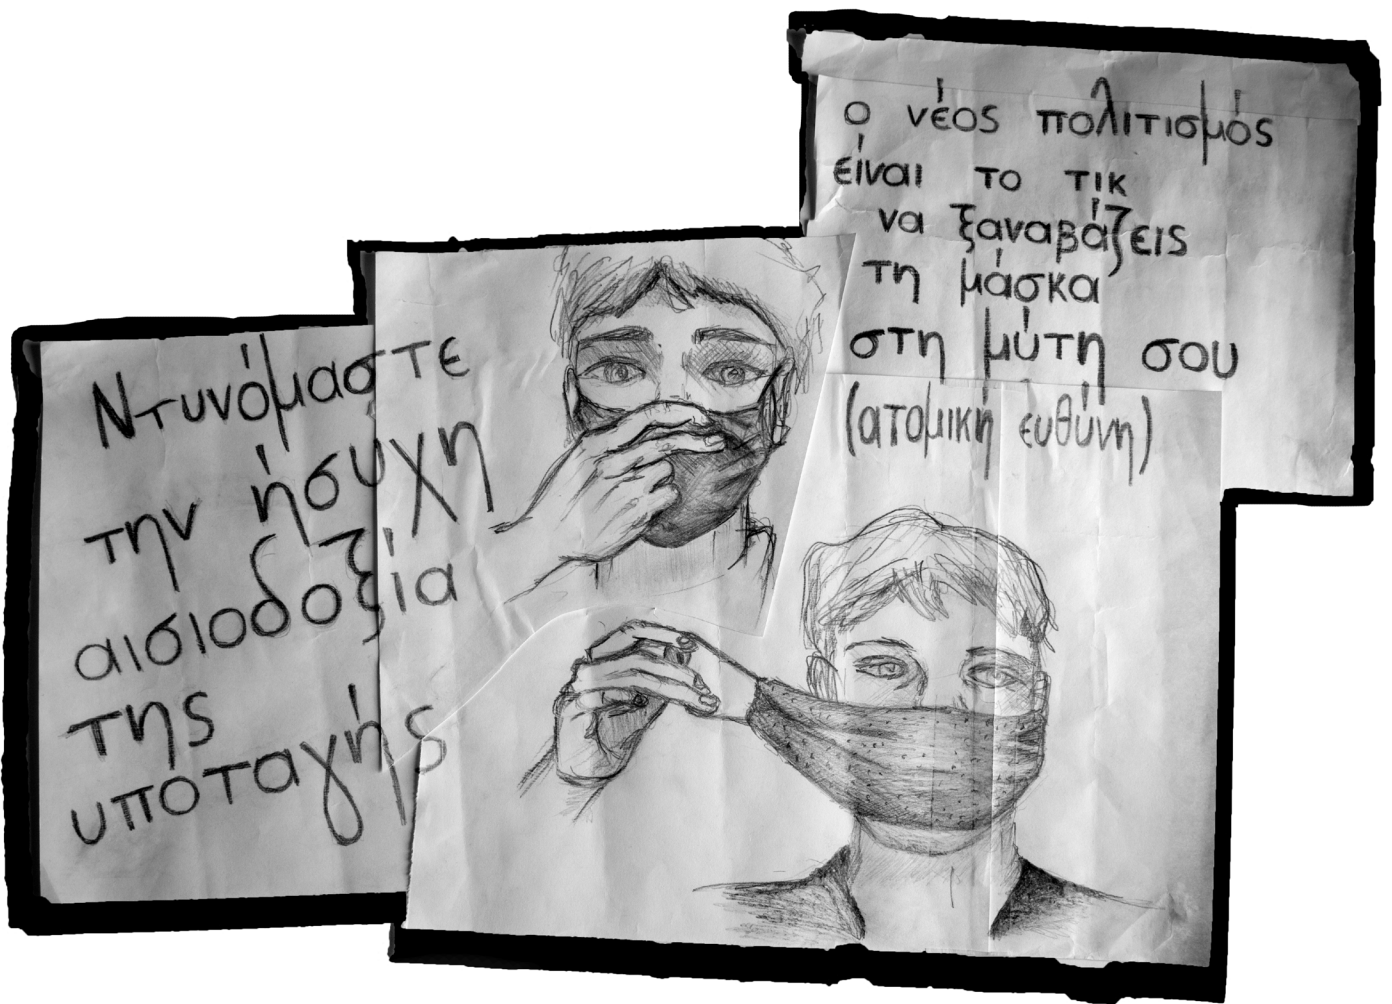 Ντυνόμαστε
την ήσυχη
αισιοδοξία
της
υποταγής
ο νέος πολιτισμός
είναι το τικ
να ξαναβάζεις
τη μάσκα
στη μύτη σου
(ατομική ευθύνη)